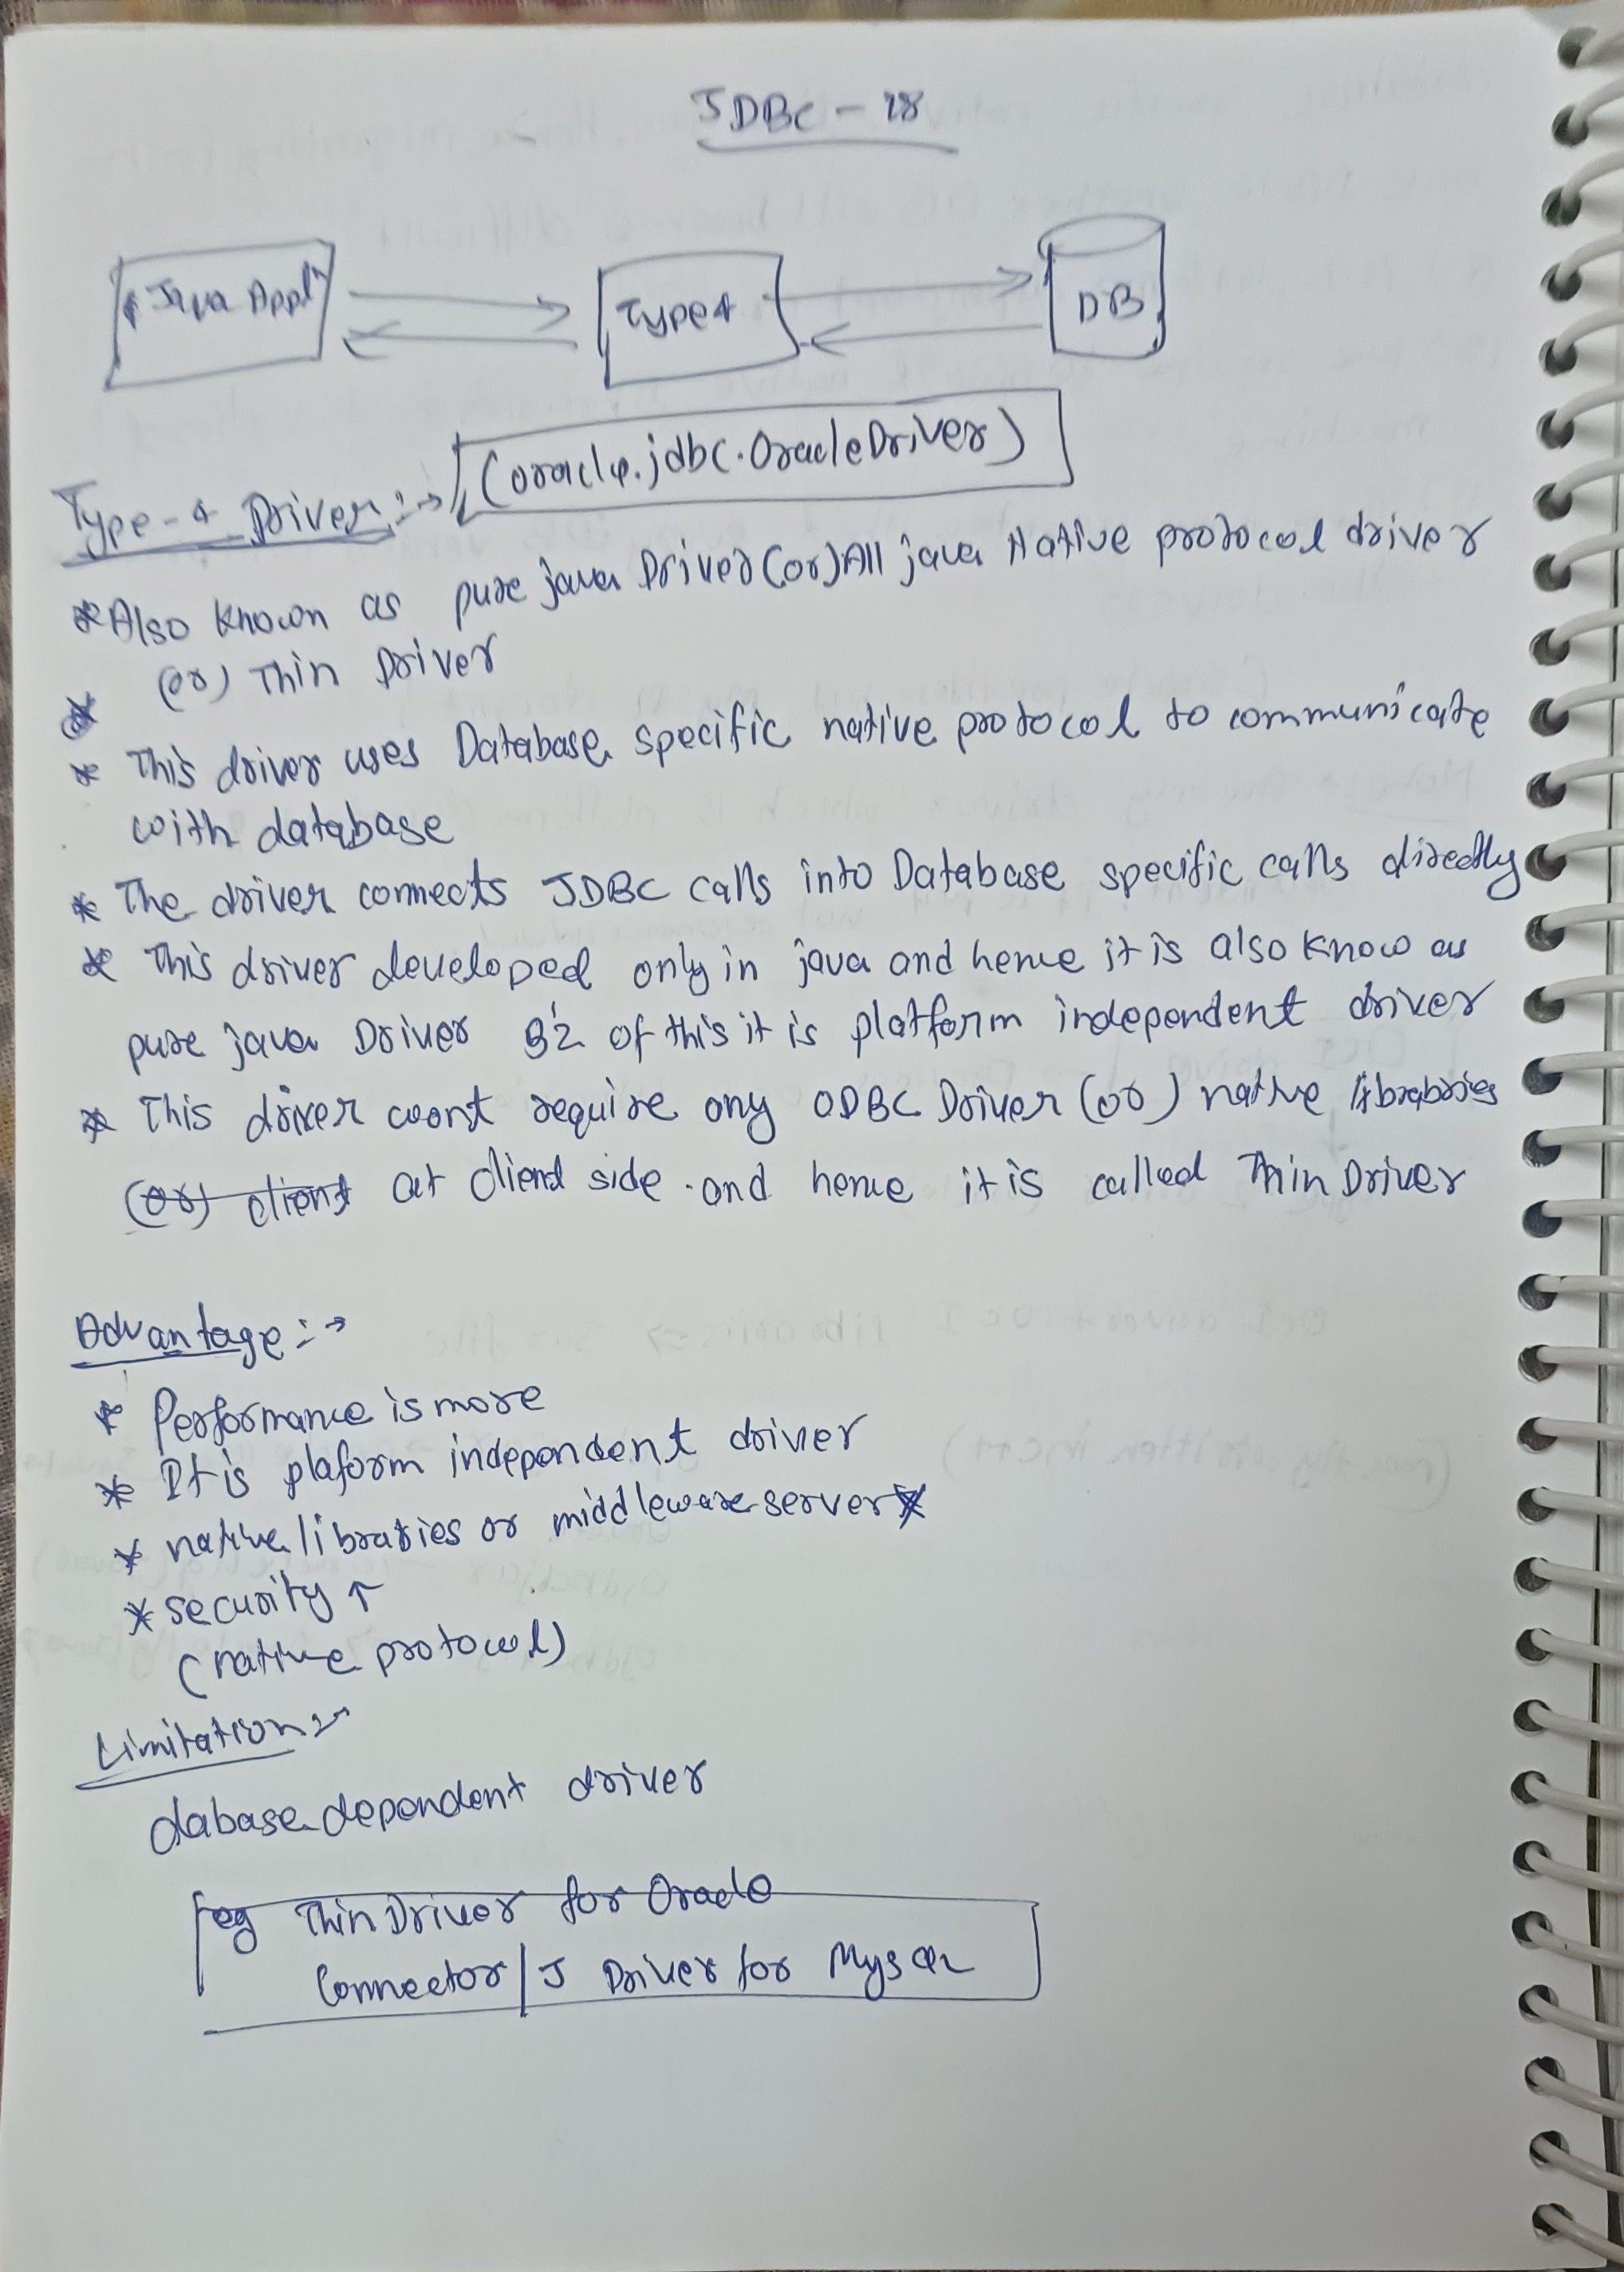 JDBC - 28
Java Appl
Type4
DB
Type-4 Driver:→ (oracle.jdbc.OracleDriver)
* Also known as pure java Driver (or) All java Native protocol driver
(or) Thin Driver
* This driver uses Database specific native protocol to communicate
with database
* The driver connects JDBC calls into Database specific calls directly
* This driver developed only in java and hence it is also know as
pure java Driver B'z of this it is platform independent driver
* This driver woont require any ODBC Driver (or) native librabries
(or) client at client side and hence it is called Thin Driver
Advantage:→
* Performance is more
* It is plaform independent driver
* native libraries or middleware server ×
* security ↑
(native protocol)
Limitation:→
dabase dependent driver
eg Thin Driver for Oracle
Connector/J Driver for MySQL